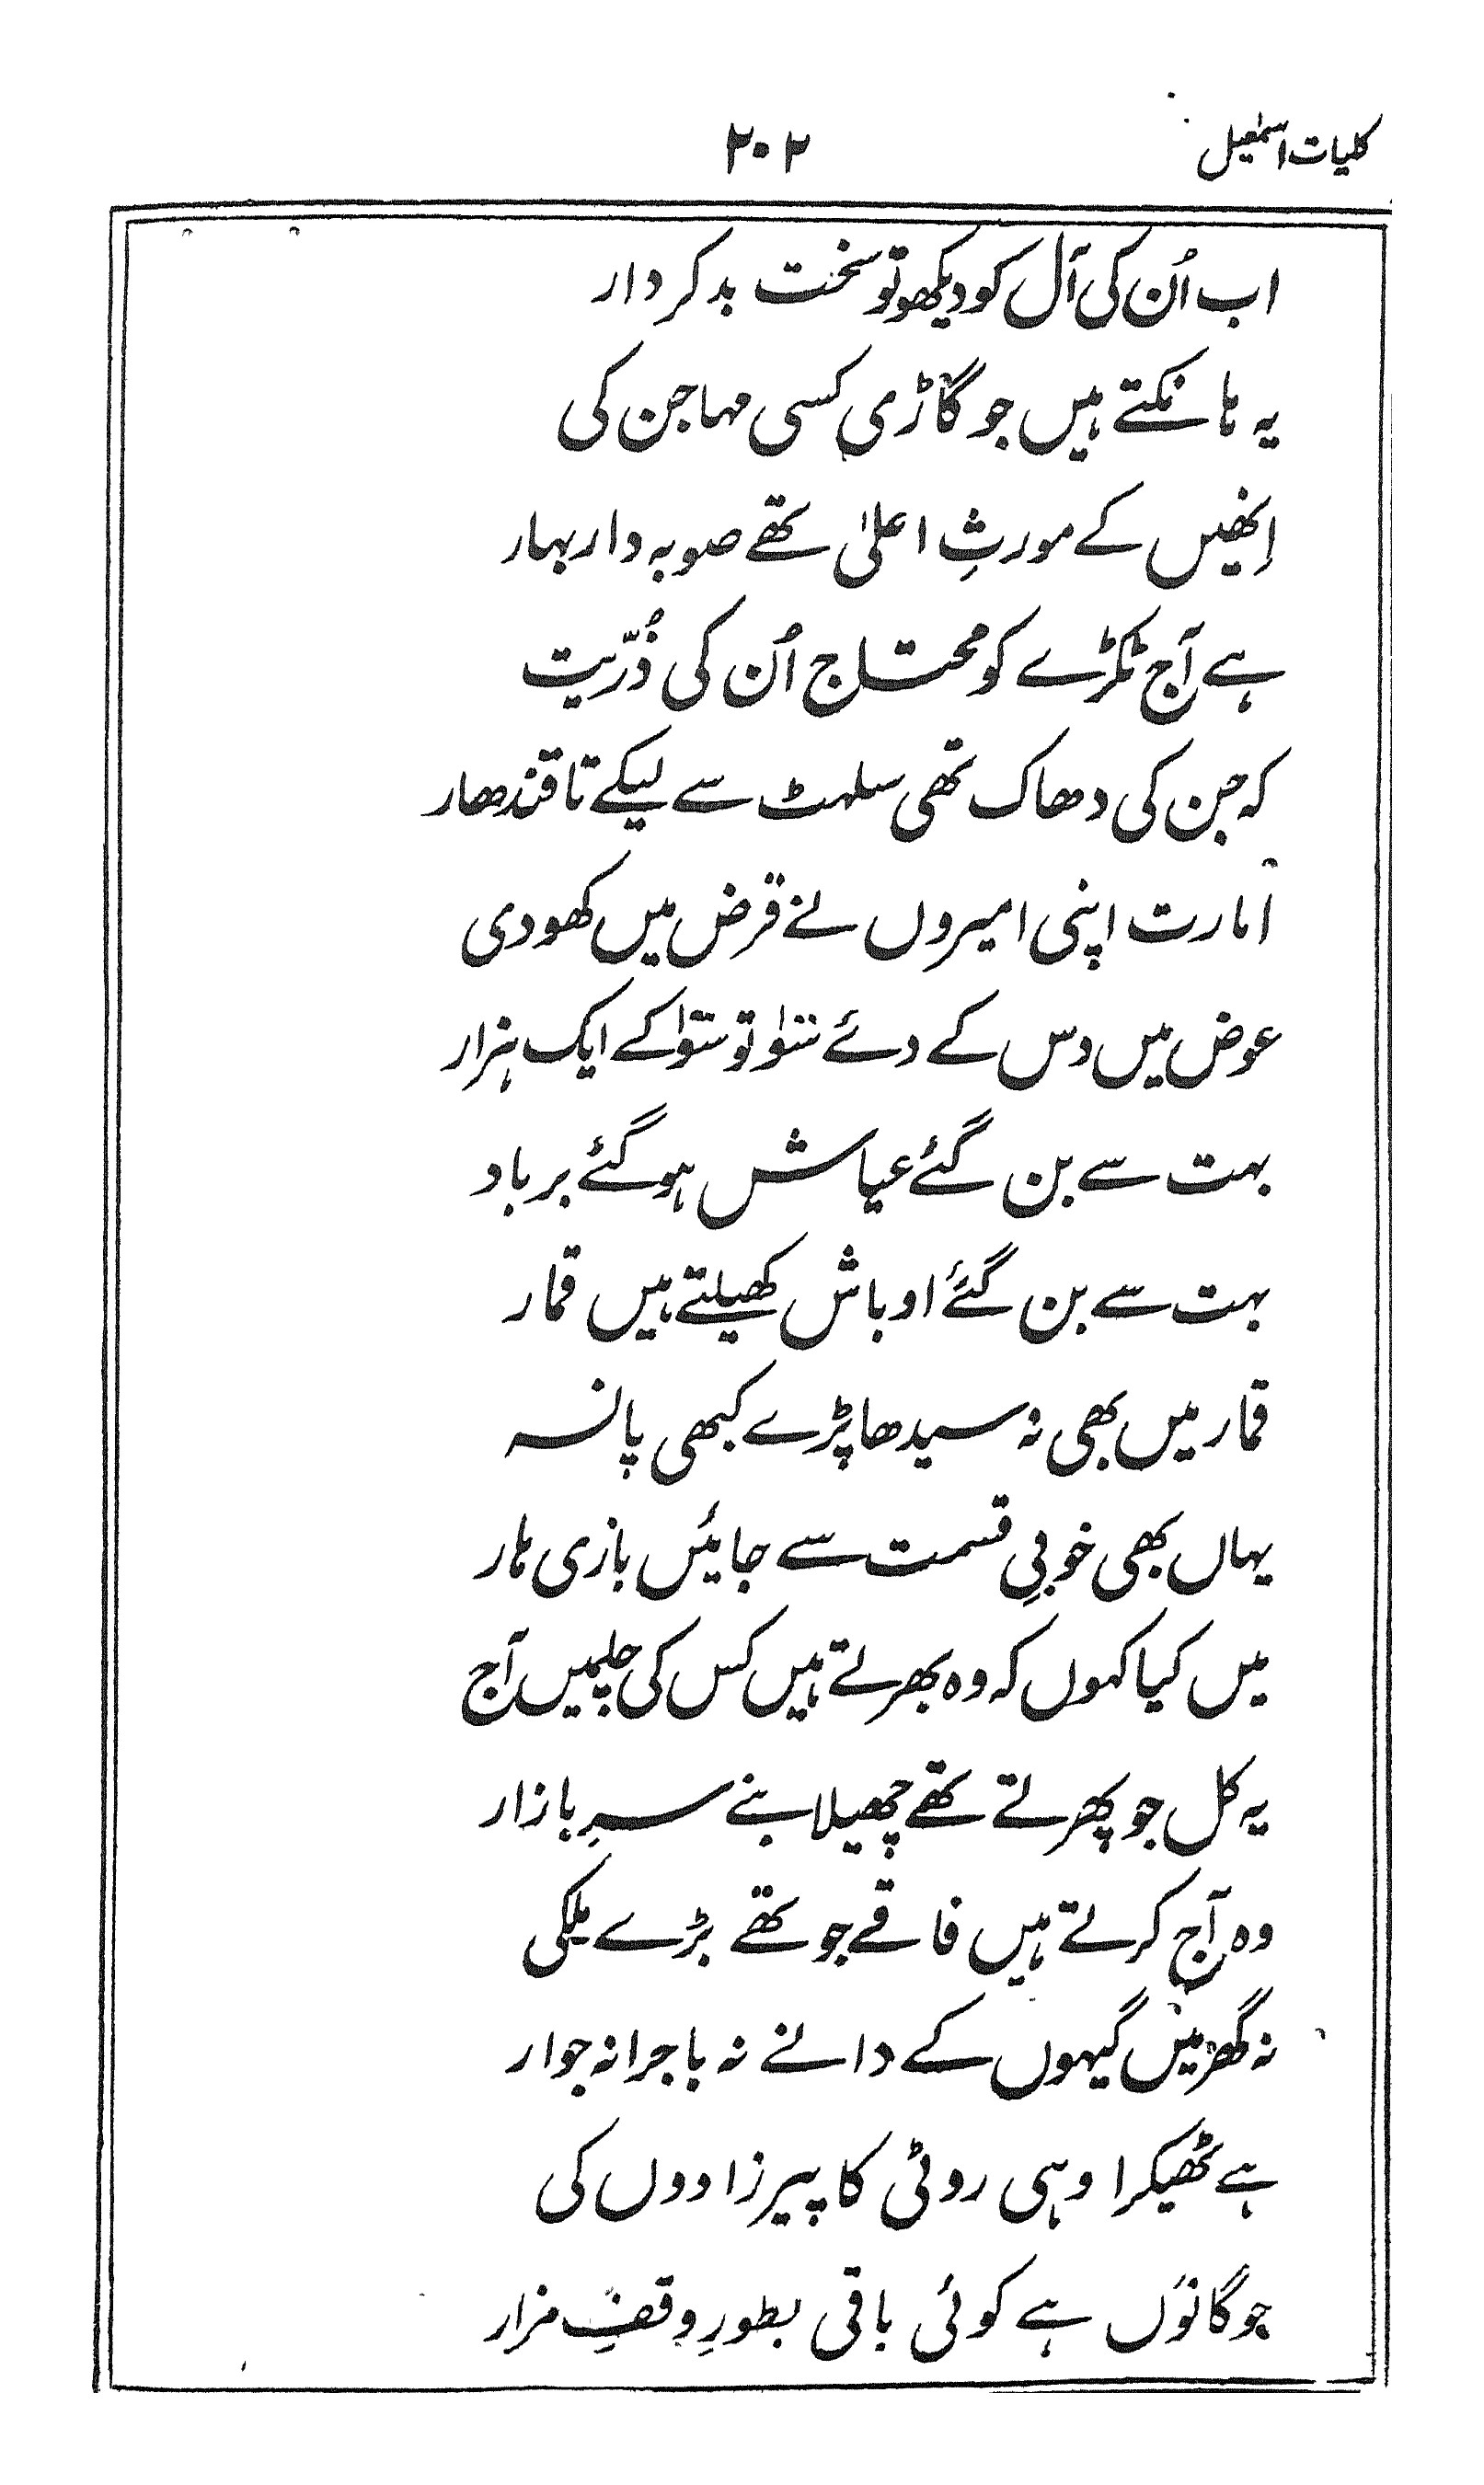 کلیات اسمٰعیل
۲۰۲
اب اُن کی آل کو دیکھو تو سخت بدکردار
یہ ہانکتے ہیں جو گاڑی کسی مہاجن کی
اِنھیں کے مورثِ اعلیٰ تھے صوبہ دار بہار
ہے آج ٹکڑے کو محتاج اُن کی ذُرّیت
کہ جن کی دھاک تھی سلہٹ سے لیکے تا قندھار
امارت اپنی امیروں نے قرض میں کھو دی
عوض میں دس کے دئے سَو تو سَو کے ایک ہزار
بہت سے بن گئے عیاش ہو گئے برباد
بہت سے بن گئے اوباش کھیلتے ہیں قمار
قمار میں بھی نہ سیدھا پڑے کبھی پانسہ
یہاں بھی خوبیِ قسمت سے جائیں بازی ہار
میں کیا کہوں کہ وہ بھرتے ہیں کس کی چلمیں آج
یہ کل جو پھرتے تھے چھیلا بنے سرِ بازار
وہ آج کرتے ہیں فاقے جو تھے بڑے ملکی
نہ گھر میں گیہوں کے دانے نہ باجرا نہ جوار
ہے ٹھیکرا وہی روٹی کا پیرزادوں کی
جو گانوں ہے کوئی باقی بطورِ وقفِ مزار